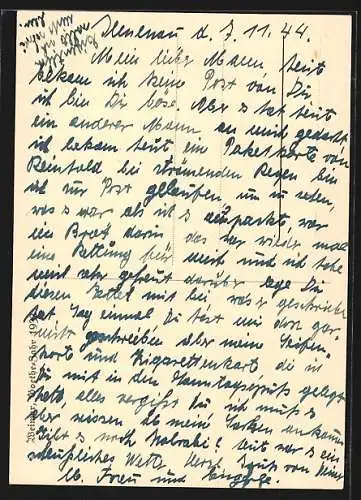 Ilmenau d. 7.11.44.
Mein lieber Mann heut
bekam ich keine Post von Dir
ich bin Dir böse. Aber es hat heut
ein anderer Mann an mich gedacht
ich bekam heut eine Paketkarte von
Reinhold bei strömenden Regen bin
ich zur Post gelaufen, um zu sehen,
was es war als ich es auspackt, war
ein Brot darin das war wieder mal
eine Rettung für mich und ich habe
mich sehr gefreut darüber lege Dir
diesen Zettel mit bei, was er geschrieben
hat. Sag einmal Du hast mir doch gar
nicht geschrieben aber meine Seifen
karte und Zigarettenkart, die ich
Dir mit in den gelegt
hab, alles vergißt Du ich muß
aber wissen ob meine Sachen ankommen
Gibt es noch Heut war es ein
scheußliches Wetter Herzl. Gruß von Deiner
lb. Frau und
Weimar, Goethe-Jahr 19